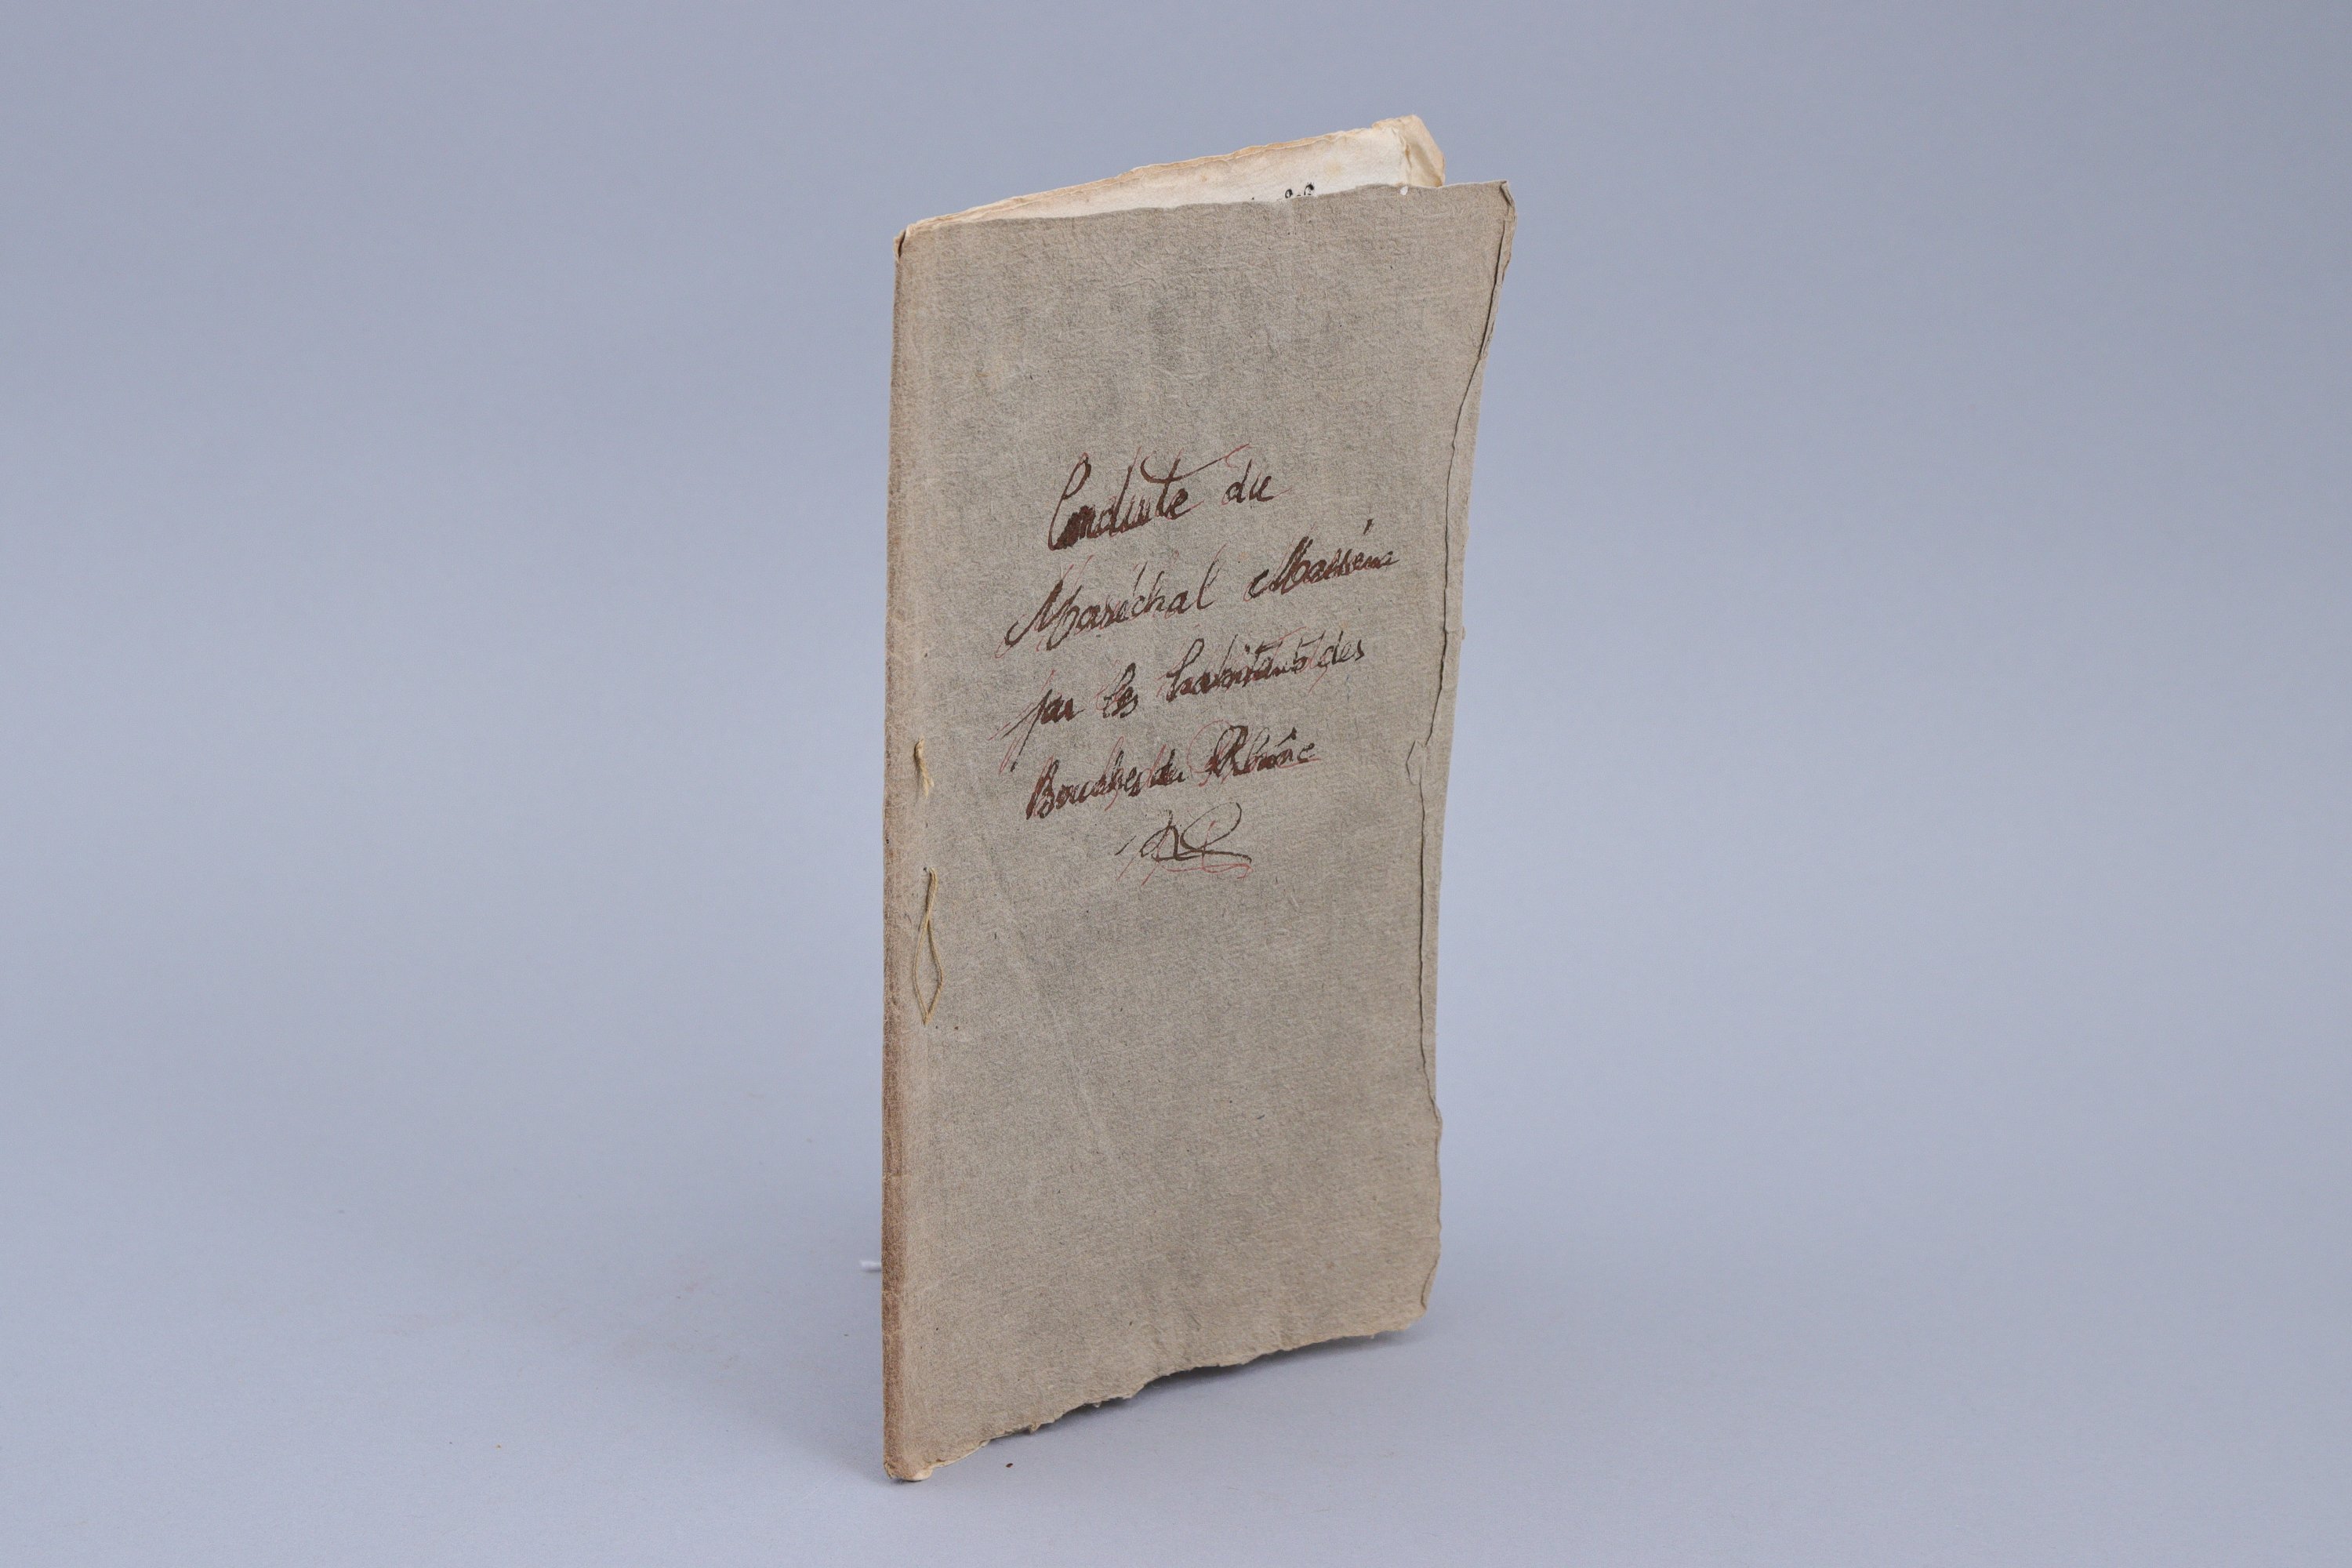 Conduite du
Maréchal Masséna
par les habitants des
Bouches du Rhône